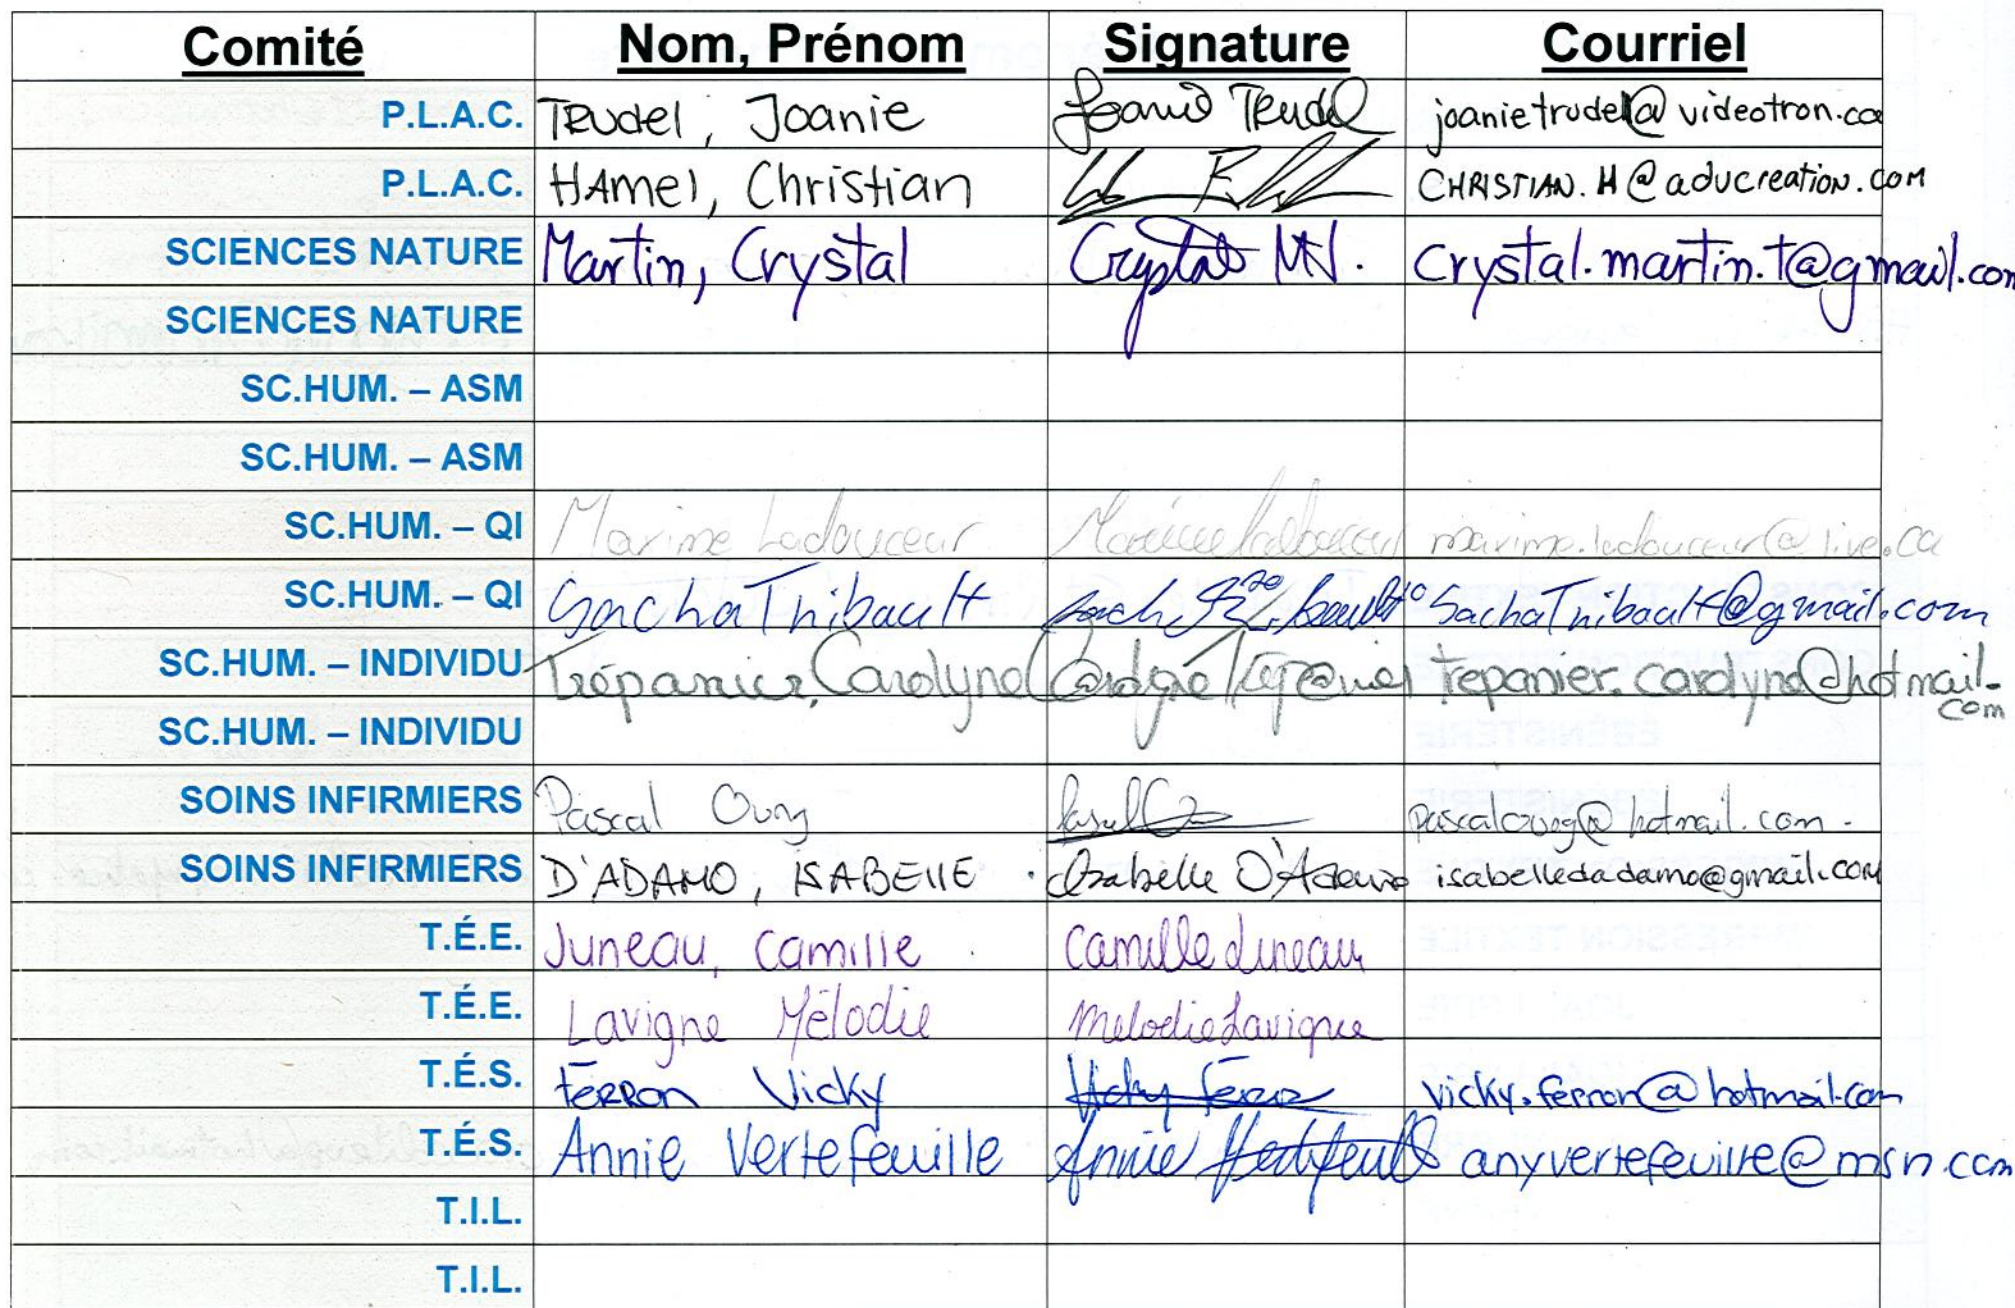 Comité Nom, Prénom Signature Courriel
P.L.A.C. Trudel, Joanie Joanie Trudel joanietrudel@videotron.ca
P.L.A.C. HAmel, Christian CHRISTIAN.H@aducreation.com
SCIENCES NATURE Martin, Crystal Crystal Crystal.martin.t@gmail.com
SCIENCES NATURE
SC.HUM. – ASM
SC.HUM. – ASM
SC.HUM. – QI Maxime Ladouceur Maxime Ladouceur maxime.ladouceur@live.ca
SC.HUM. – QI Sacha Thibault SachaThibault@gmail.com
SC.HUM. – INDIVIDU Trépanier, Carolyne Carolyne Trépanier trepanier.carolyne@hotmail.com
SC.HUM. – INDIVIDU
SOINS INFIRMIERS Pascal Pascal
SOINS INFIRMIERS D'ADAMO, ISABELLE Isabelle D'Adamo isabelledadamo@gmail.com
T.É.E. Juneau, Camille Camille Juneau
T.É.E. Lavigne Mélodie Mélodie Lavigne
T.É.S. Ferron Vicky Vicky Ferron vicky.ferron@hotmail.com
T.É.S. Annie Vertefeuille Annie Vertefeuille anyvertefeuille@msn.com
T.I.L.
T.I.L.